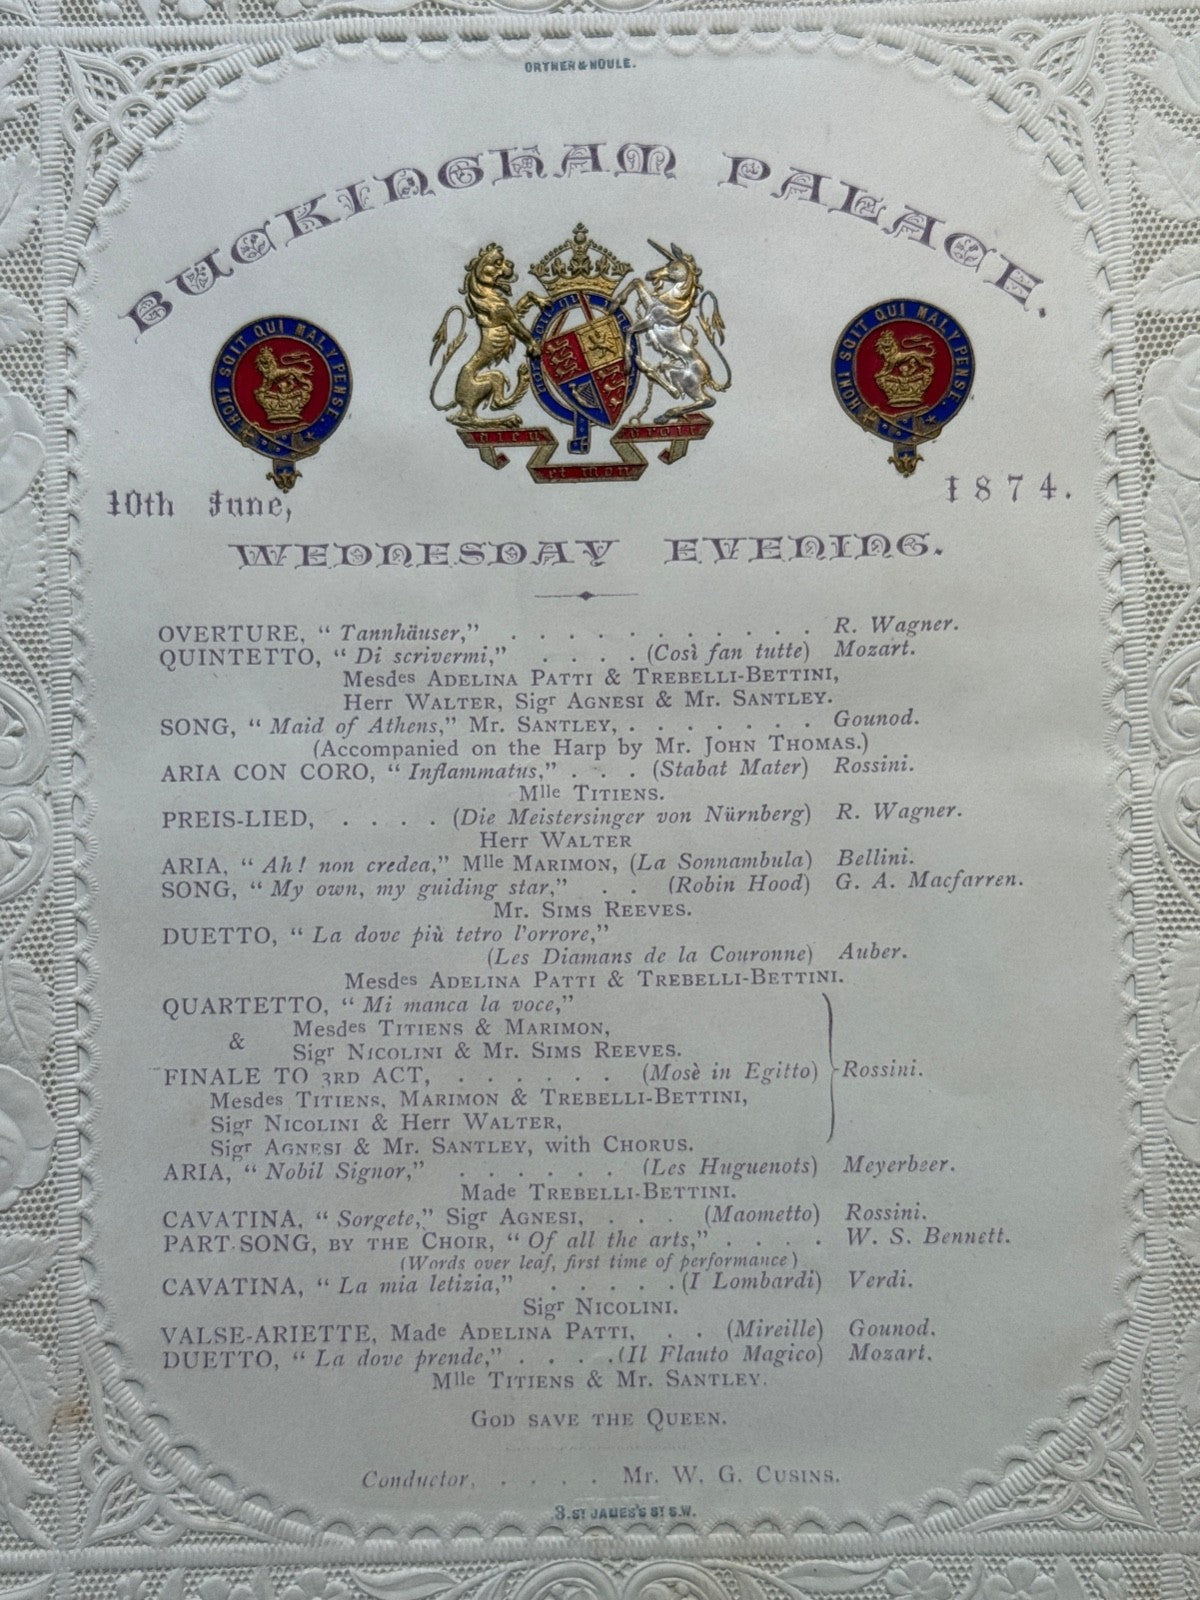 ORTNER & HOULE.
BUCKINGHAM PALACE.
HONI SOIT QUI MAL Y PENSE.
HONI SOIT QUI MAL Y PENSE.
Dieu et mon droit
10th June, 1874.
WEDNESDAY EVENING.
OVERTURE, “ Tannhäuser,” . . . . . . . . . . . R. Wagner.
QUINTETTO, “ Di scrivermi,” . . . . (Così fan tutte) Mozart.
Mesdes ADELINA PATTI & TREBELLI-BETTINI,
Herr WALTER, Sigr AGNESI & Mr. SANTLEY.
SONG, “ Maid of Athens,” Mr. SANTLEY, . . . . . . . Gounod.
(Accompanied on the Harp by Mr. JOHN THOMAS.)
ARIA CON CORO, “ Inflammatus,” . . . (Stabat Mater) Rossini.
Mlle TITIENS.
PREIS-LIED, . . . . (Die Meistersinger von Nürnberg) R. Wagner.
Herr WALTER
ARIA, “ Ah! non credea,” Mlle MARIMON, (La Sonnambula) Bellini.
SONG, “ My own, my guiding star,” . . (Robin Hood) G. A. Macfarren.
Mr. SIMS REEVES.
DUETTO, “ La dove più tetro l'orrore,”
(Les Diamans de la Couronne) Auber.
Mesdes ADELINA PATTI & TREBELLI-BETTINI.
QUARTETTO, “ Mi manca la voce,”
Mesdes TITIENS & MARIMON,
&
Sigr NICOLINI & Mr. SIMS REEVES.
FINALE TO 3RD ACT, . . . . . . (Mosè in Egitto) Rossini.
Mesdes TITIENS, MARIMON & TREBELLI-BETTINI,
Sigr NICOLINI & Herr WALTER,
Sigr AGNESI & Mr. SANTLEY, with CHORUS.
ARIA, “ Nobil Signor,” . . . . . . (Les Huguenots) Meyerbeer.
Made TREBELLI-BETTINI.
CAVATINA, “ Sorgete,” Sigr AGNESI, . . . (Maometto) Rossini.
PART-SONG, BY THE CHOIR, “ Of all the arts,” . . . . W. S. Bennett.
(Words over leaf, first time of performance)
CAVATINA, “ La mia letizia,” . . . . . (I Lombardi) Verdi.
Sigr NICOLINI.
VALSE-ARIETTE, Made ADELINA PATTI, . . (Mireille) Gounod.
DUETTO, “ La dove prende,” . . . . (Il Flauto Magico) Mozart.
Mlle TITIENS & Mr. SANTLEY.
GOD SAVE THE QUEEN.
Conductor, . . . . Mr. W. G. CUSINS.
3. ST JAMES'S ST S.W.